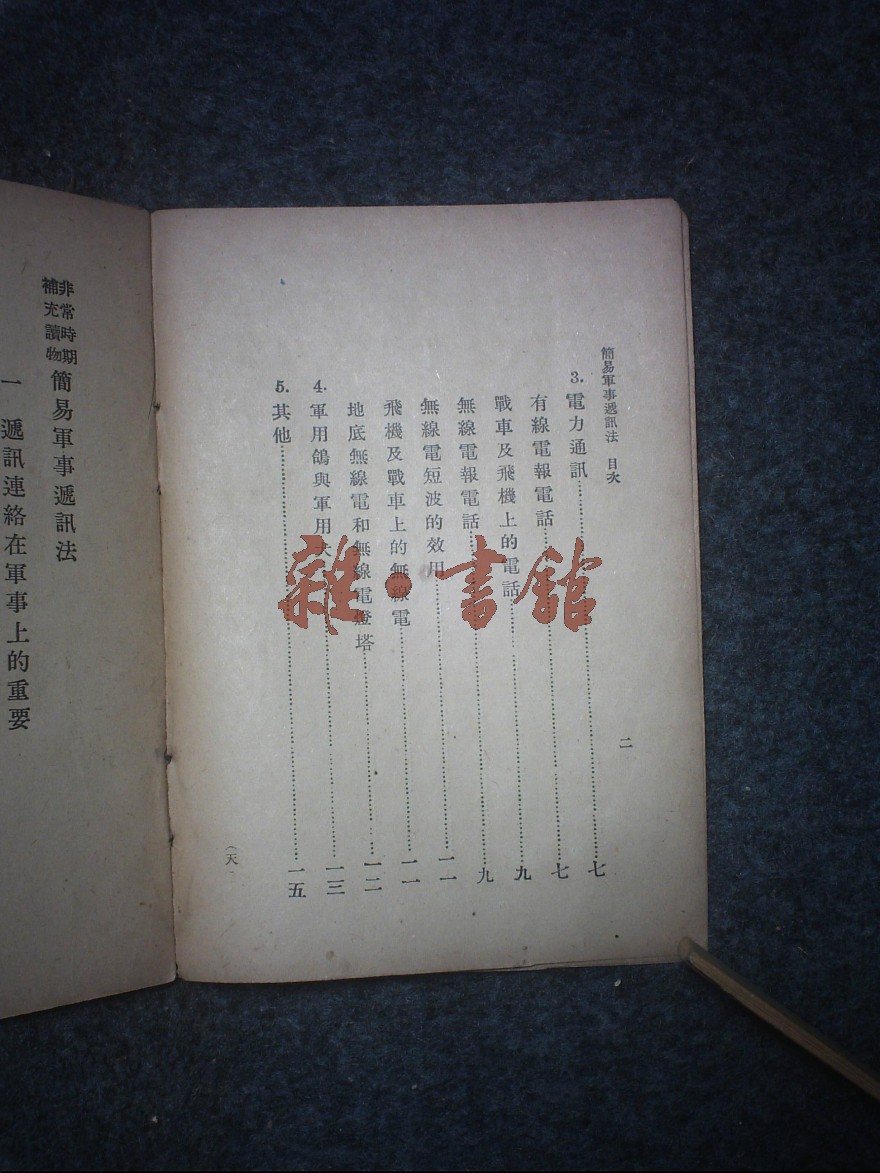 簡易軍事遞訊法 目次
二
3. 電力通訊……七
有線電報電話……七
戰車及飛機上的電話……九
無線電報電話……九
無線電短波的效用……一一
飛機及戰車上的無線電……一一
地底無線電和無線電燈塔……一二
4. 軍用鴿與軍用犬……一三
5. 其他……一五
(天
非常時期
補充讀物
簡易軍事遞訊法
一 遞訊連絡在軍事上的重要
雜·書館